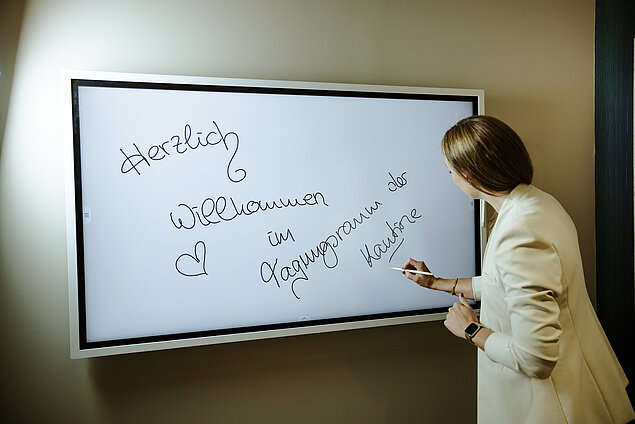 Herzlich
Willkommen
im
Tagungsraum der